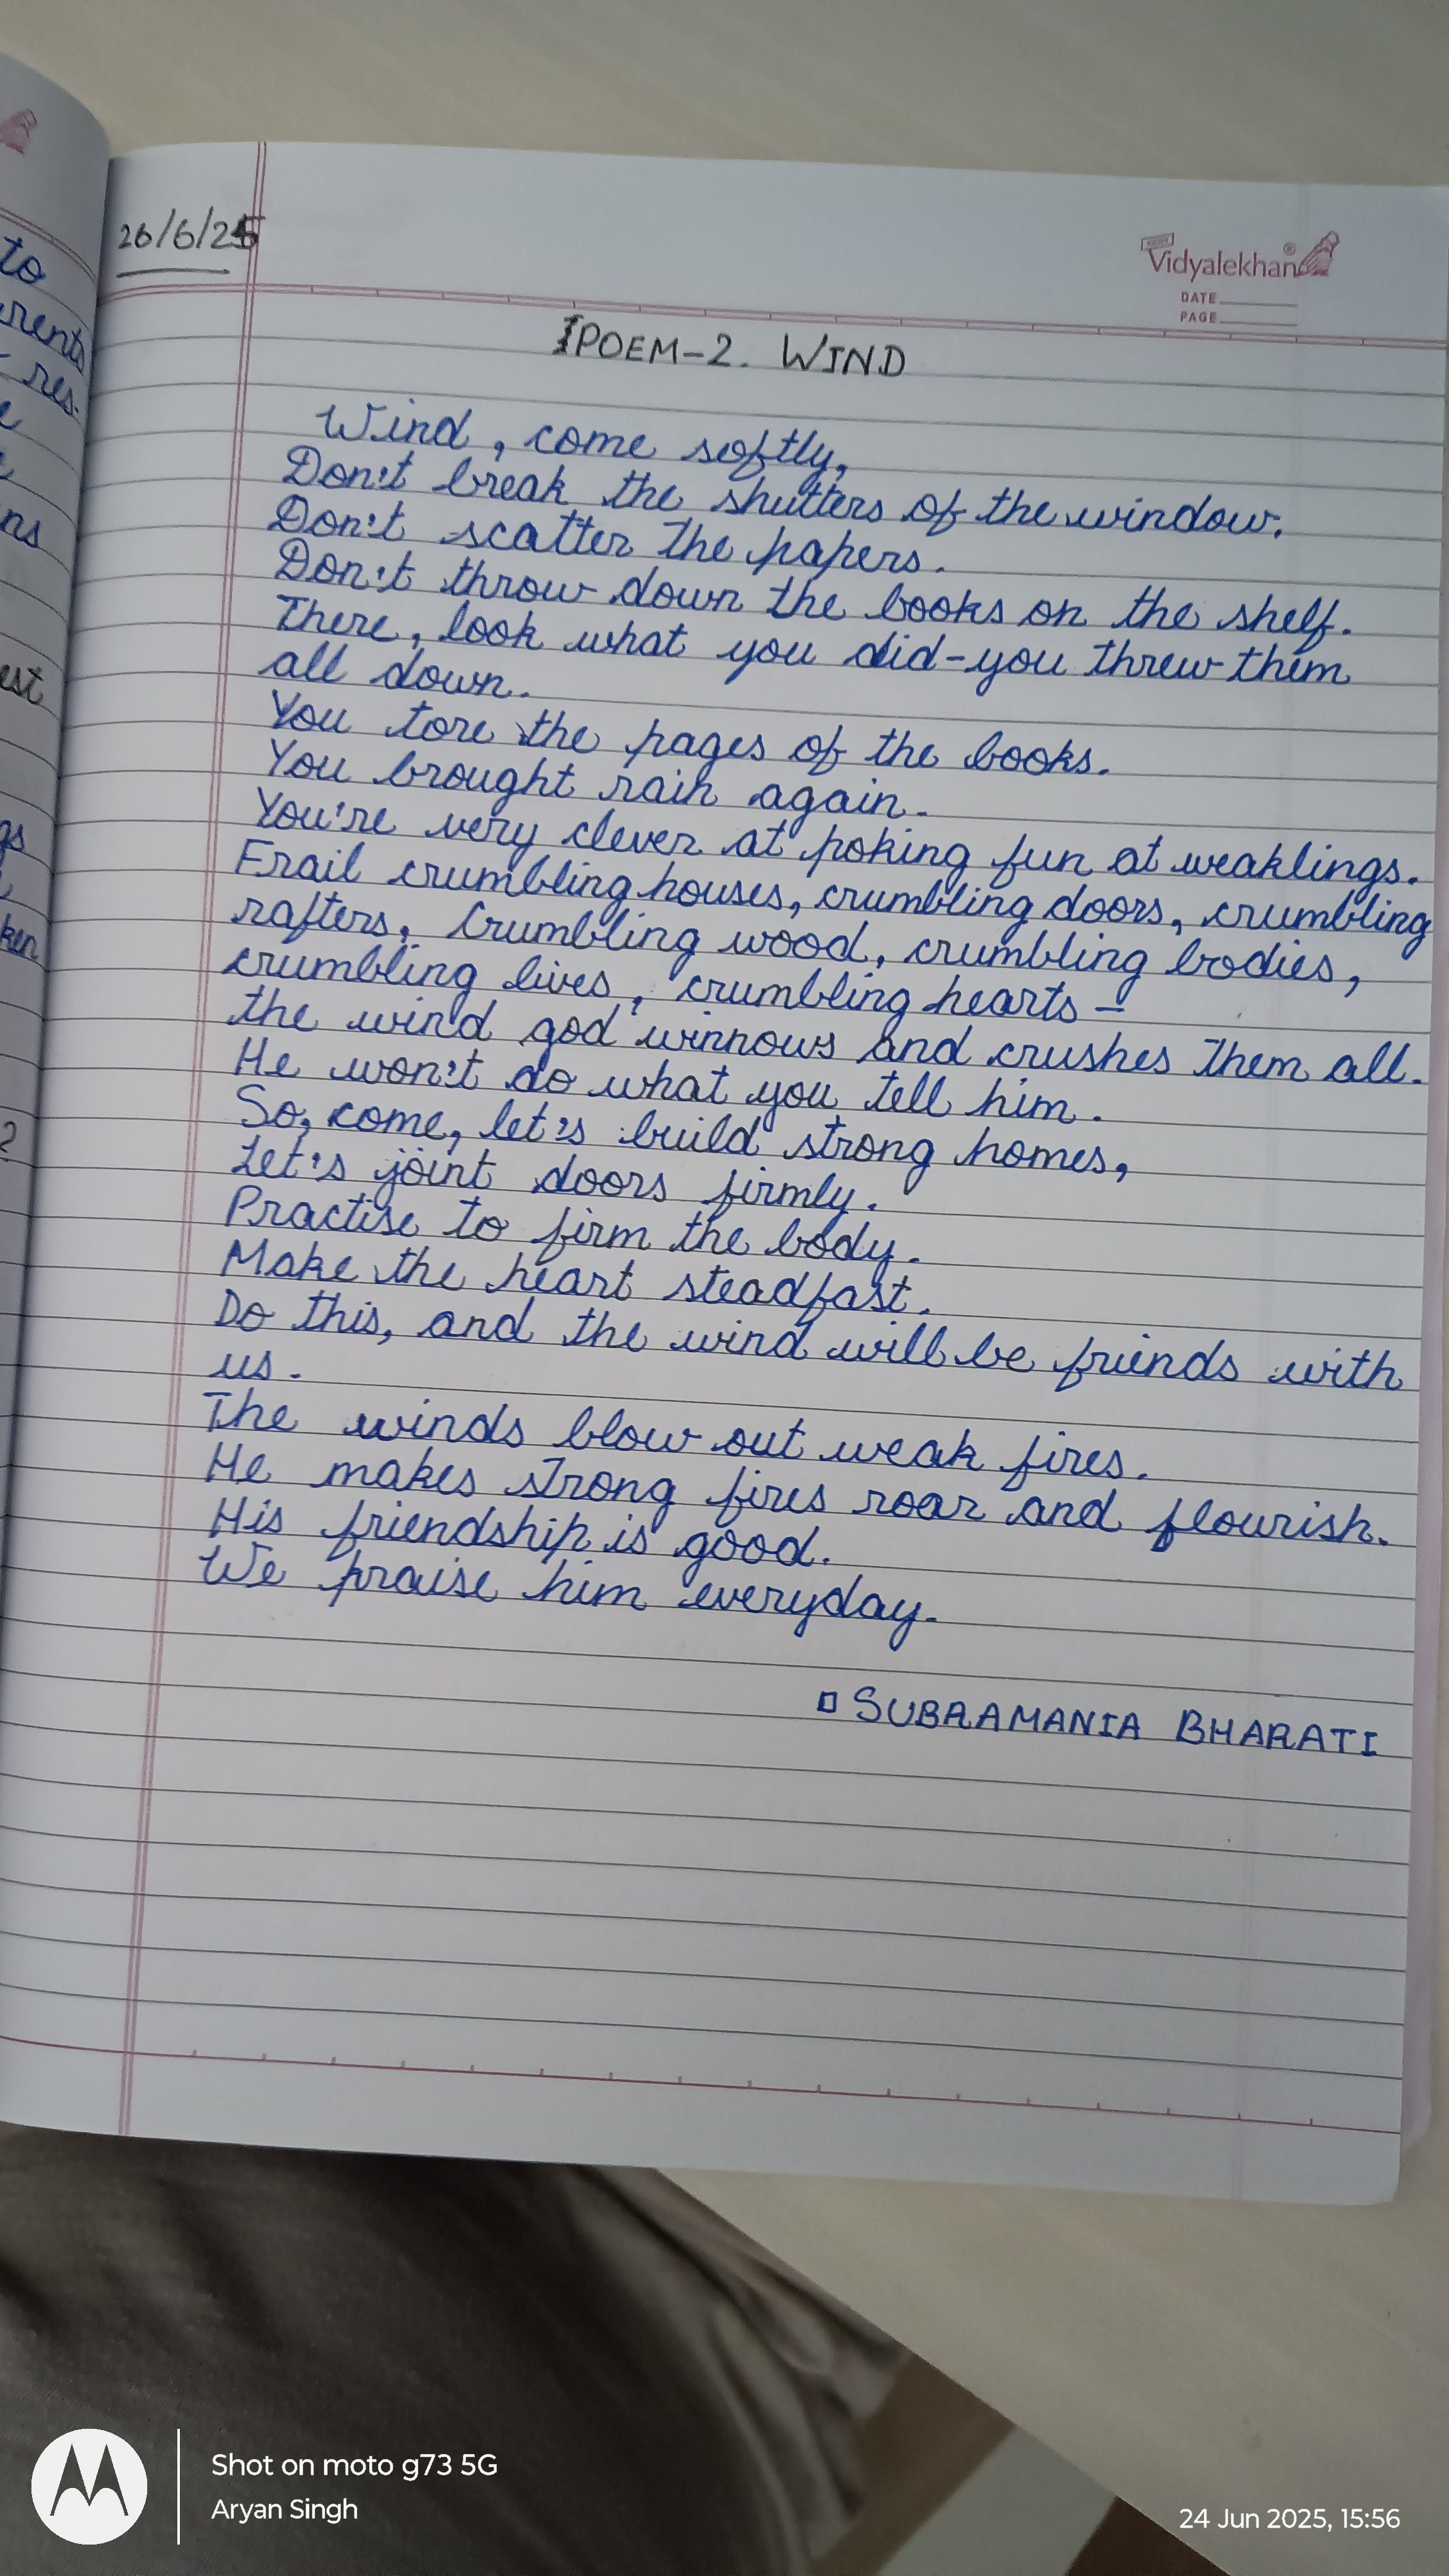 to
rents
res-
ns
est
gs
ken
2
26/6/25
Vidyalekhan®
DATE
PAGE
POEM-2. WIND
Wind, come softly,
Don't break the shutters of the window.
Don't scatter the papers.
Don't throw down the books on the shelf.
There, look what you did-you threw them
all down.
You tore the pages of the books.
You brought rain again.
You're very clever at poking fun at weaklings.
Frail crumbling houses, crumbling doors, crumbling
rafters, crumbling wood, crumbling bodies,
crumbling lives, crumbling hearts –
the wind god winnows and crushes them all.
He won't do what you tell him.
So, come, let's build strong homes,
Let's joint doors firmly.
Practise to firm the body.
Make the heart steadfast.
Do this, and the wind will be friends with
us.
The winds blow out weak fires.
He makes strong fires roar and flourish.
His friendship is good.
We praise him everyday.
SUBRAMANIA BHARATI
Shot on moto g73 5G
Aryan Singh
24 Jun 2025, 15:56